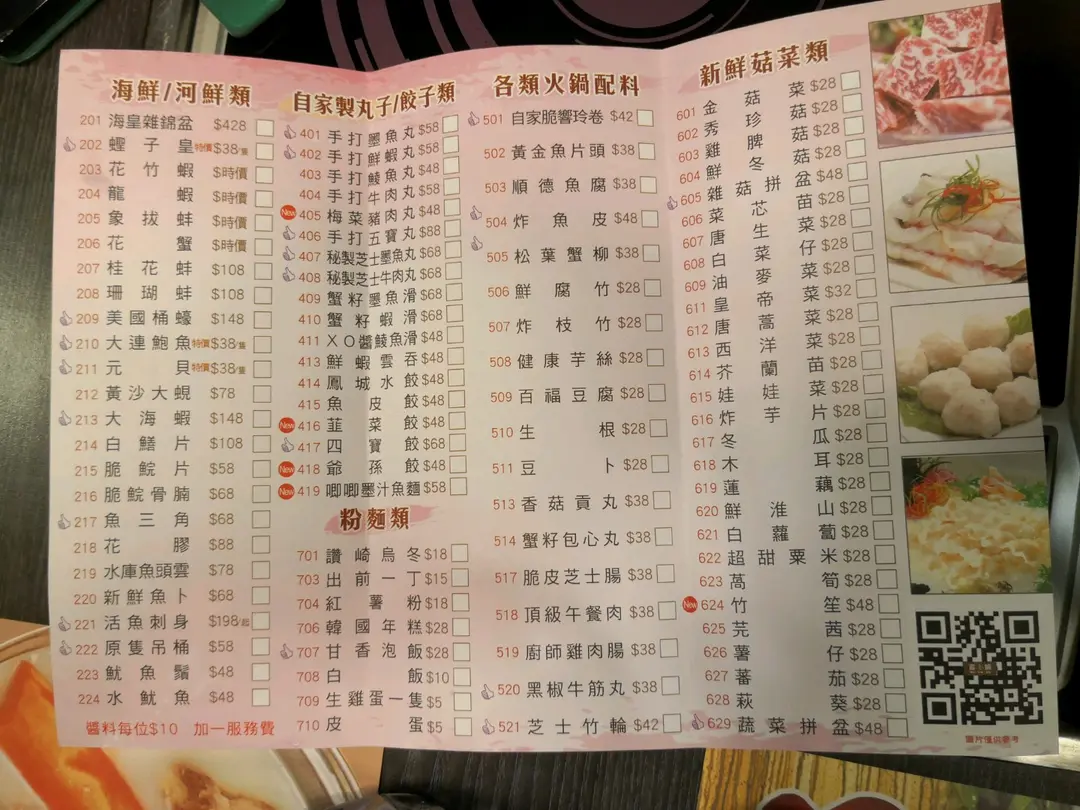 海鮮/河鮮類
201 海皇雜錦盆 $428
202 蟶子皇 特價$38/隻
203 花竹蝦 $時價
204 龍蝦 $時價
205 象拔蚌 $時價
206 花蟹 $時價
207 桂花蚌 $108
208 珊瑚蚌 $108
209 美國桶蠔 $148
210 大連鮑魚 特價$38/隻
211 元貝 特價$38/隻
212 黃沙大蜆 $78
213 大海蝦 $148
214 白鱔片 $108
215 脆鯇片 $58
216 脆鯇骨腩 $68
217 魚三角 $68
218 花膠 $88
219 水庫魚頭雲 $78
220 新鮮魚卜 $68
221 活魚刺身 $198/起
222 原隻吊桶 $58
223 魷魚鬚 $48
224 水魷魚 $48
醬料每位$10 加一服務費
自家製丸子/餃子類
401 手打墨魚丸 $58
402 手打鮮蝦丸 $58
403 手打鯪魚丸 $48
404 手打牛肉丸 $58
New 405 梅菜豬肉丸 $48
406 手打五寶丸 $88
407 秘製芝士墨魚丸 $68
408 秘製芝士牛肉丸 $68
409 蟹籽墨魚滑 $68
410 蟹籽蝦滑 $68
411 XO醬鯪魚滑 $48
413 鮮蝦雲吞 $48
414 鳳城水餃 $48
415 魚皮餃 $48
New 416 韮菜餃 $48
417 四寶餃 $68
New 418 爺孫餃 $48
New 419 唧唧墨汁魚麵 $58
粉麵類
701 讚崎烏冬 $18
703 出前一丁 $15
704 紅薯粉 $18
706 韓國年糕 $28
707 甘香泡飯 $28
708 白飯 $10
709 生雞蛋一隻 $5
710 皮蛋 $5
各類火鍋配料
501 自家脆響玲卷 $42
502 黃金魚片頭 $38
503 順德魚腐 $38
504 炸魚皮 $48
505 松葉蟹柳 $38
506 鮮腐竹 $28
507 炸枝竹 $28
508 健康芋絲 $28
509 百福豆腐 $28
510 生根 $28
511 豆卜 $28
513 香菇貢丸 $38
514 蟹籽包心丸 $38
517 脆皮芝士腸 $38
518 頂級午餐肉 $38
519 廚師雞肉腸 $38
520 黑椒牛筋丸 $38
521 芝士竹輪 $42
新鮮菇菜類
601 金菇菜 $28
602 秀珍菇 $28
603 雞脾菇 $28
604 鮮冬菇 $28
605 雜菇拼盆 $48
606 菜芯苗 $28
607 唐生菜 $28
608 白菜仔 $28
609 油麥菜 $28
611 皇帝菜 $32
612 唐蒿菜 $28
613 西洋菜 $28
614 芥蘭苗 $28
615 娃娃菜 $28
616 炸芋片 $28
617 冬瓜 $28
618 木耳 $28
619 蓮藕 $28
620 鮮淮山 $28
621 白蘿蔔 $28
622 超甜粟米 $28
623 萵筍 $28
New 624 竹笙 $48
625 芫茜 $28
626 薯仔 $28
627 蕃茄 $28
628 萩葵 $28
629 蔬菜拼盆 $48
圖片僅供參考